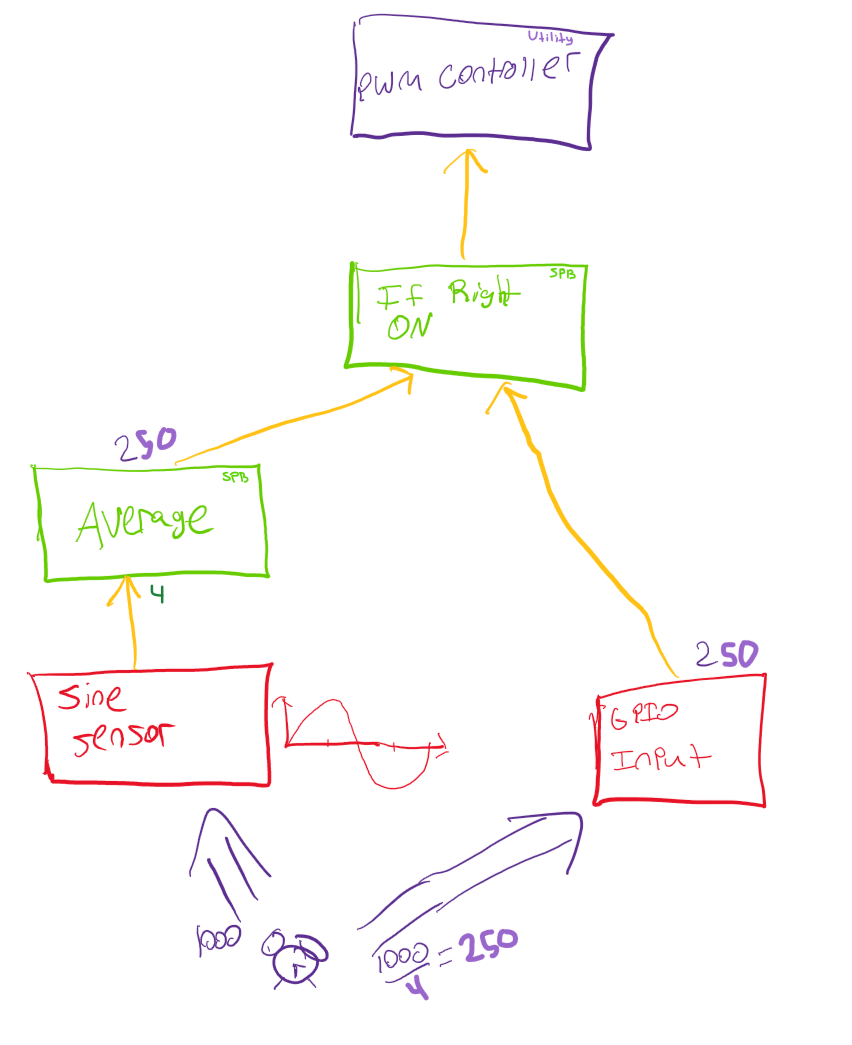 Utility
PWM Contoller
SPB
If Right
ON
250
SPB
Average
4
250
Sine
sensor
GPIO
Input
1000
1000/4 = 250